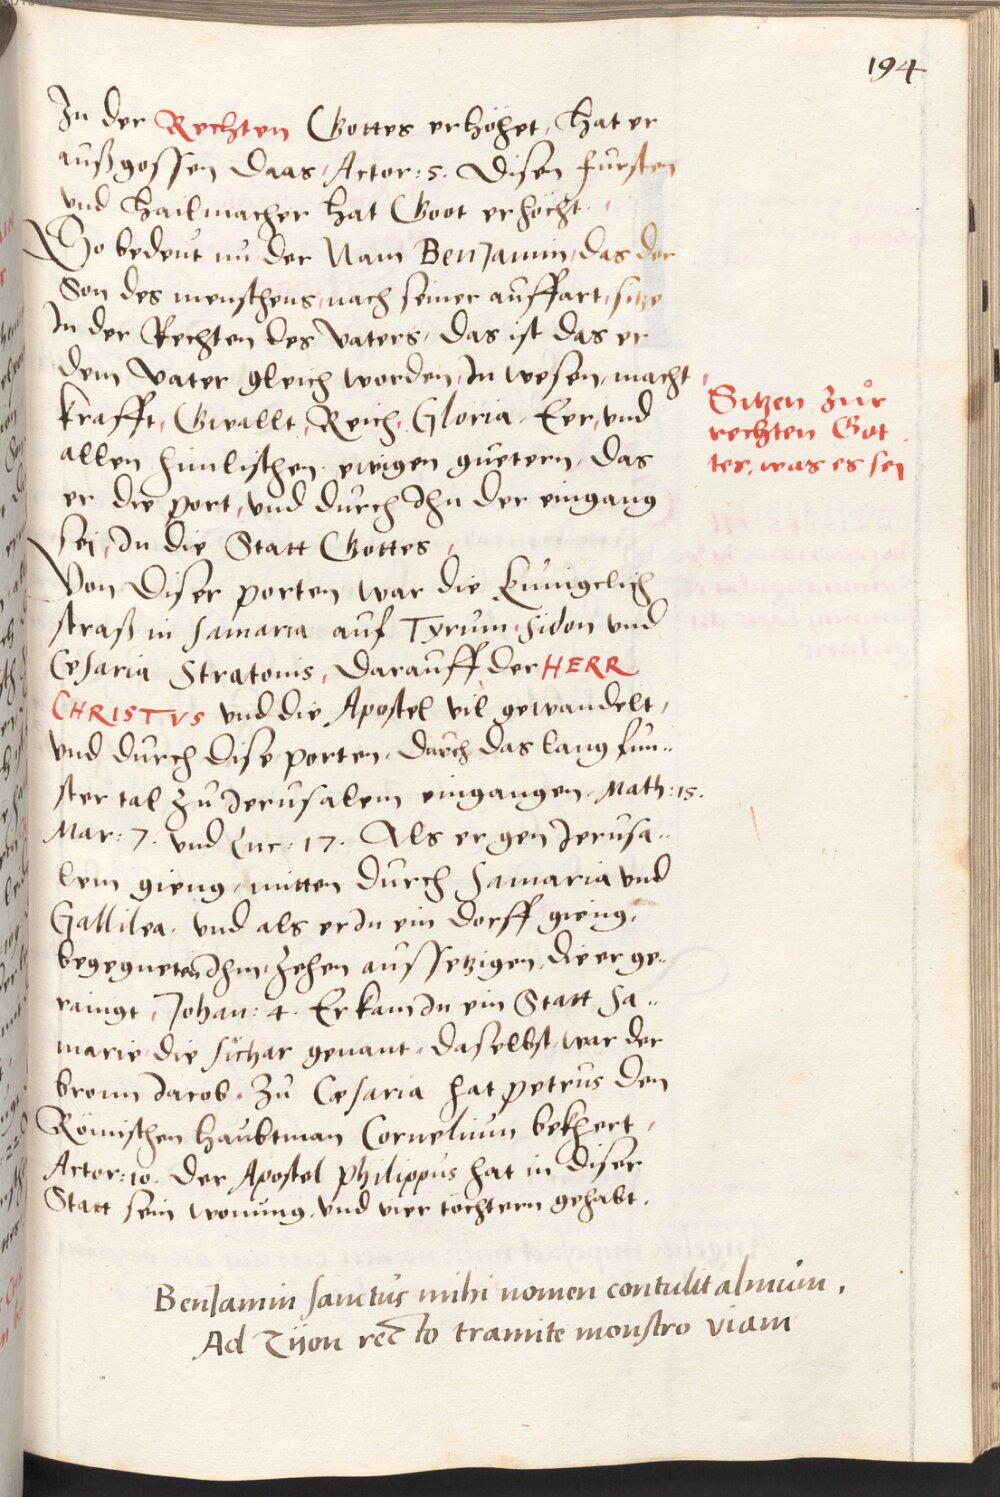 194
In der Rechten Gottes erhöhet, hat er
außgossen daas, Actor: 5. Disen fursten
und hailmacher hat Goot erhöcht.
So bedeut nu der Nam BenJamin, das der
Son des menschens, nach seiner auffart, sitze
In der Rechten des Vaters, das ist das er
dem Vater gleich worden, In wesen, macht
krafft, Gwallt, Reich, Gloria. Eer, und
allen himlischen, ewigen guetern, das
er die port, und durch Ihn der eingang
sei, In die Statt Gottes,
Sitzen zur
rechten Got
tes, was es sey
Von diser porten war die kuniigclich
straß in Samaria auf Tyrum, Sidon und
Cesaria Stratonis, darauff der HERR
CHRISTVS und die Apostel vil gewandelt,
und durch dise porten, durch das lang fun=
ster tal zu Jerusalem eingangen, Math: 15.
Mar: 7. und Luc: 17. Als er gen Jerusa=
lem gieng, mitten durch Samaria und
Gallilea, und als er In ein dorff gieng,
begegneten Ihm, Zehen aussetzigen, die er ge=
rainigt, Johan: 4. Er kam In ein Statt Sa=
marie, die Sichar genant, daselbst war der
bronn Jacob. Zu Cæsaria hat petrus den
Römischen haubtman Cornelium bekhert,
Actor: 10. Der Apostel Philippus hat in diser
Statt sein wonung, und vier töchtern gehabt.
BenJamin sanctus mihi nomen contulit almum,
Ad Zijon recto tramite monstro viam